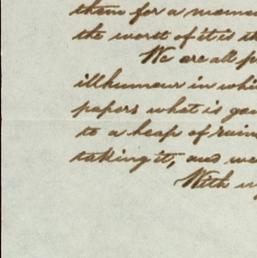 them for a momen
the worst of it is th
We are all p
illhumour in whi
papers what is goi
to a heap of ruin
taking it, and we
With m